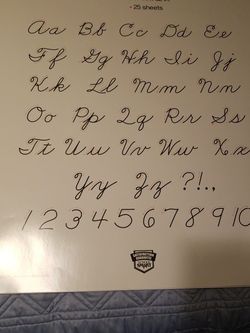 • 25 sheets
Aa Bb Cc Dd Ee
Ff Gg Hh Ii Jj
Kk Ll Mm Nn
Oo Pp Qq Rr Ss
Tt Uu Vv Ww Xx
Yy Zz ?!.,
1 2 3 4 5 6 7 8 9 10